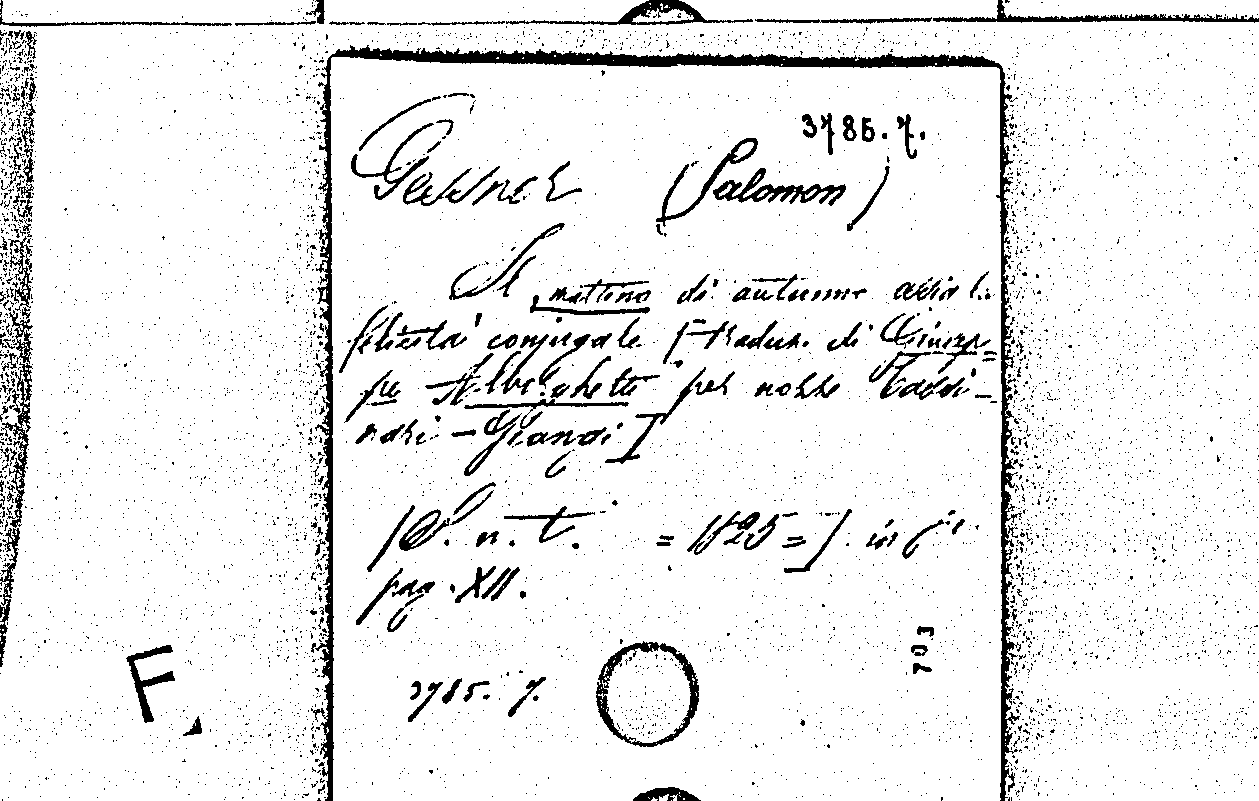 3785. 7.
Gessner (Salomon)
Il mattino di autunno ossia la
felicità conjugale [Traduz. di Giusep=
pe Alborghetti per nozze
- Giangi]
[S. n. t. = 1825 =]. in 8°.
pag. XII.
703
3785. 7.
F